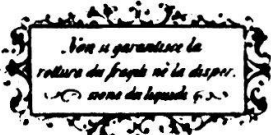 Non si garantisce la
rottura dei fragili nè la disper.
sione dei liquidi